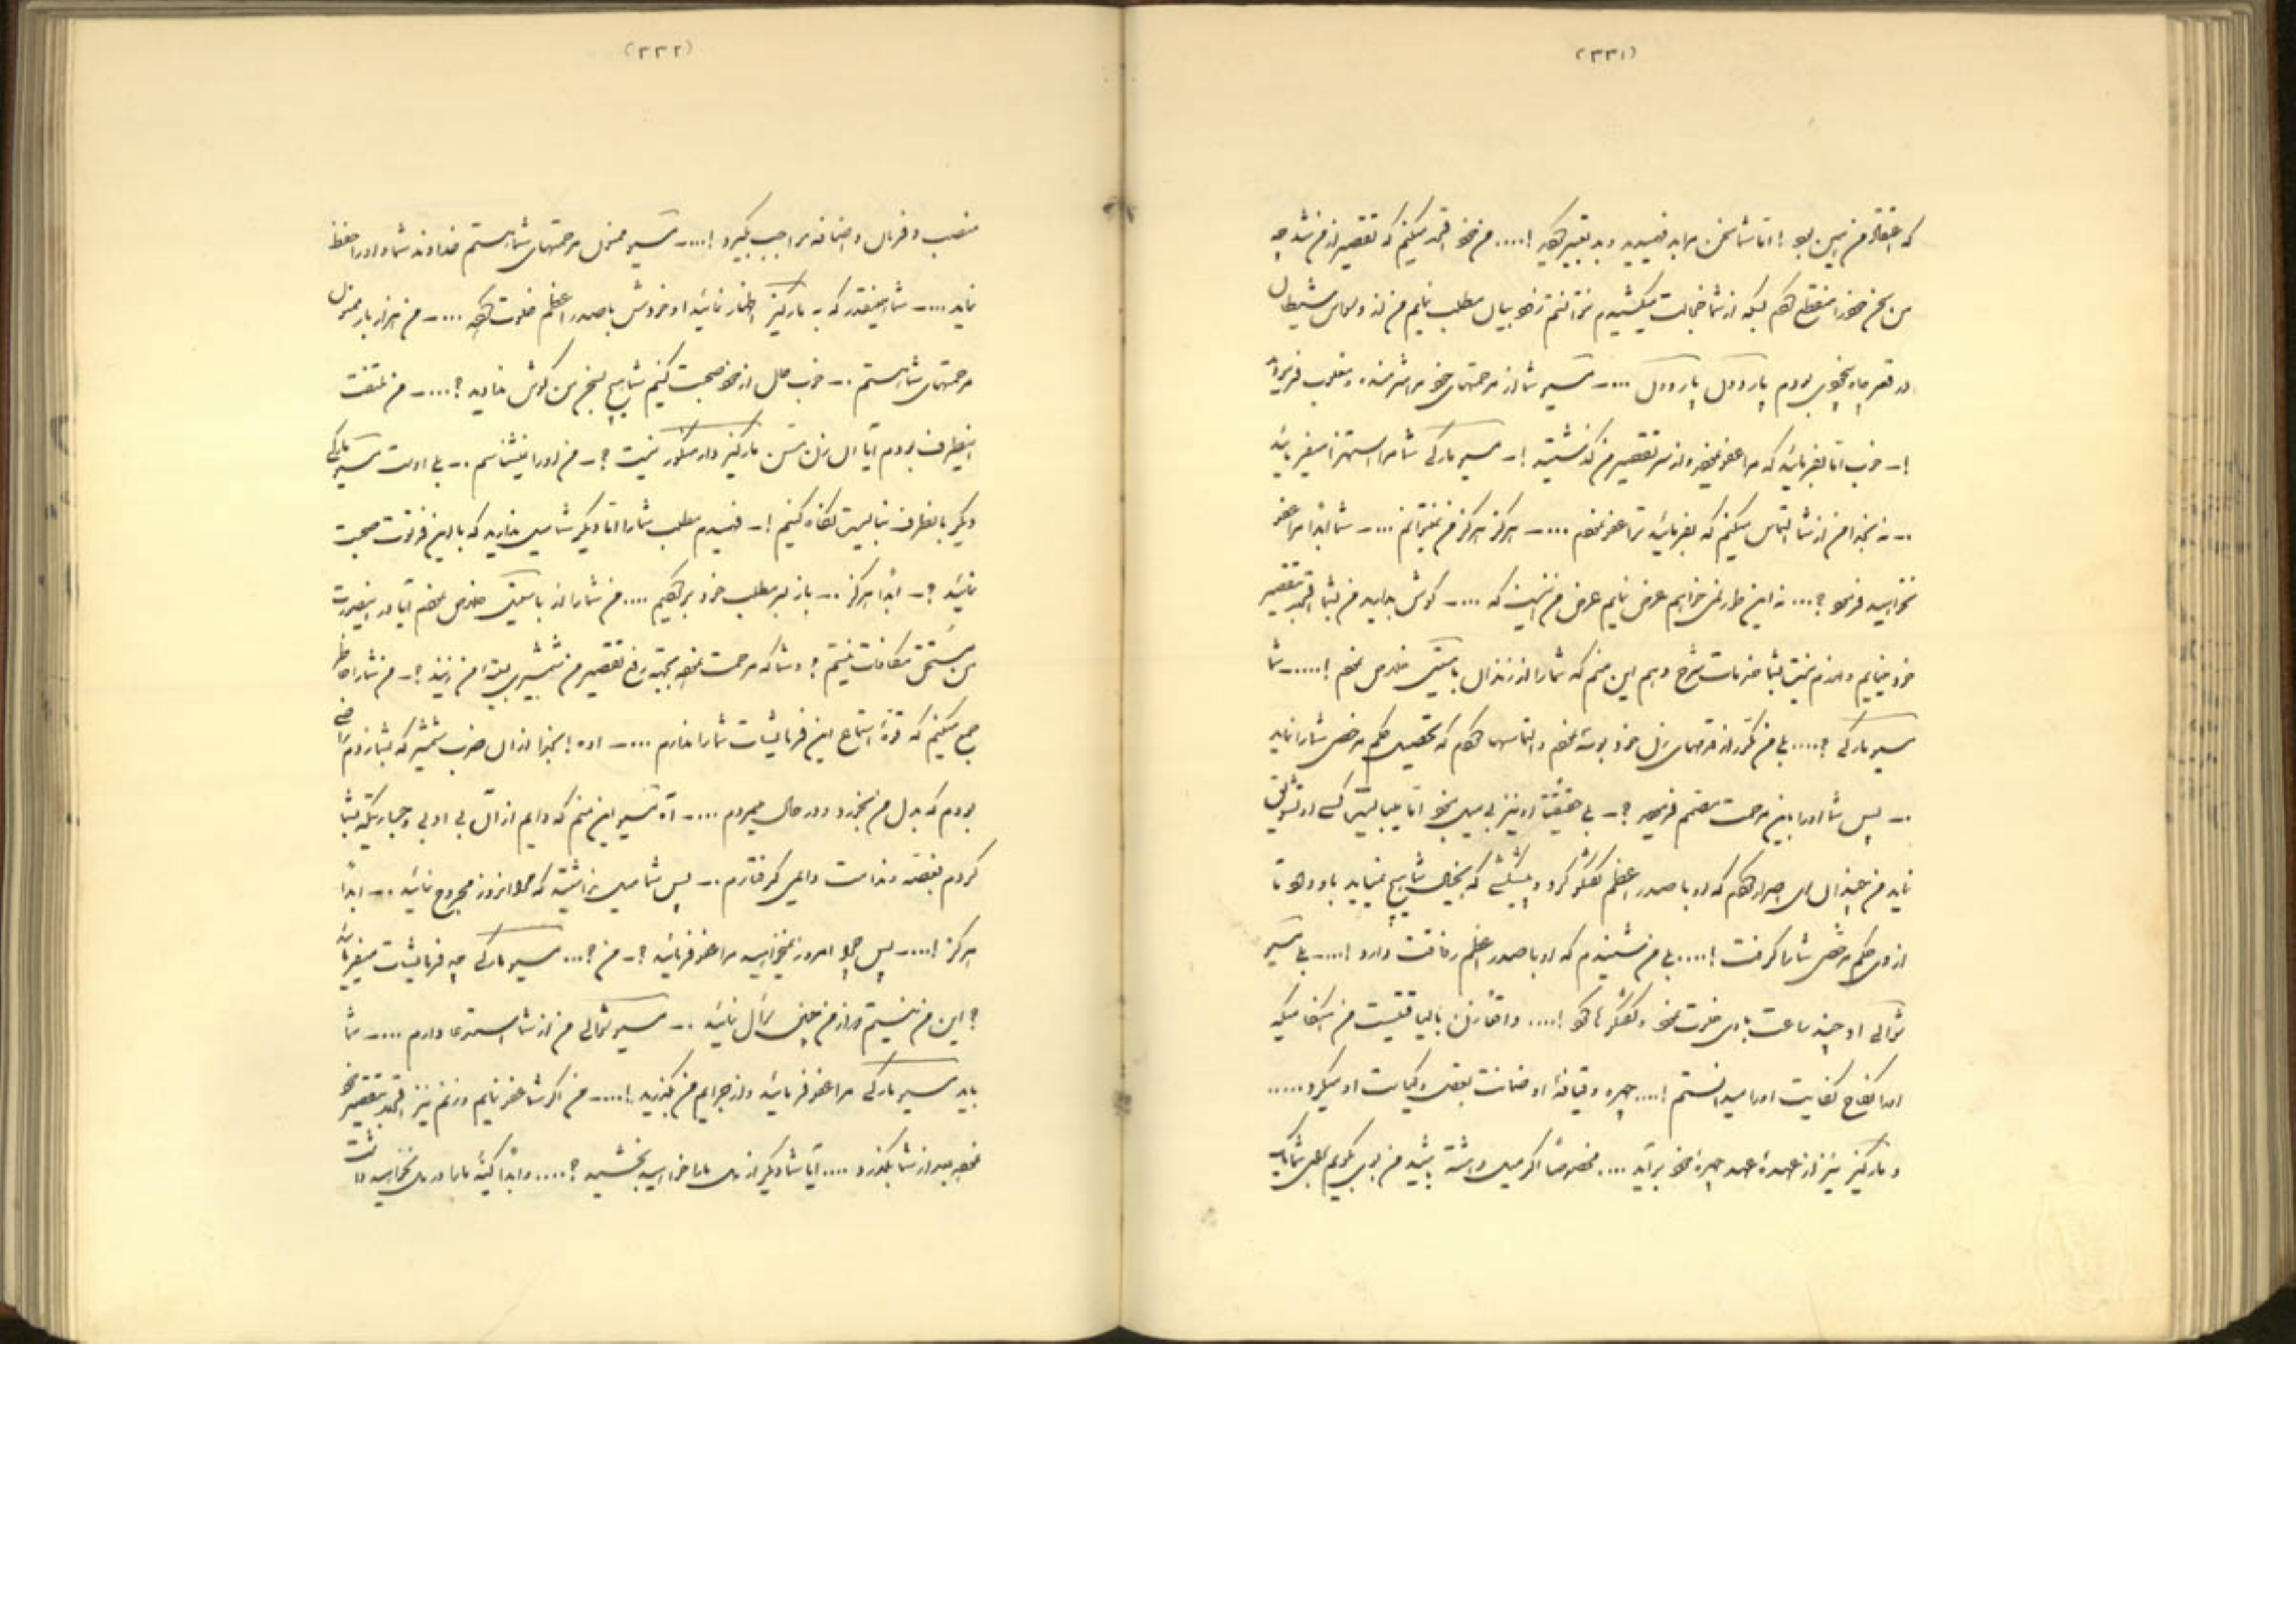 (۳۳۱)
که اعتقاد من این بود! اما شما سخن مرا بد فهمیدید و بد تعبیر کردید!.... من خود اقرار میکنم که تقصیر از من شد چه
من سخن خود را منقطع کردم بلکه از شما خجالت میکشیدم نتوانستم زود بیان مطلب نمایم من از وسواس شیطان
در قعر چاه بودم پاردون پاردون ....ـ مسیو شما از مرحمتهای خود مرا شرمنده و مغلوب فرمودید
!ـ خوب اما بفرمائید که مرا عفو نموده و از سر تقصیر من گذشتید !ـ مسیو مارکی شما مرا استهزا میفرمائید
..ـ نه بخدا من از شما التماس میکنم که بفرمائید ترا عفو نمودم ....ـ هرگز هرگز من نمیتوانم ....ـ شما ابداً مرا عفو
نخواهید فرمود ؟... نه این طور نمی خواهم عرض نمایم عرض من اینست که ....ـ گوش بدارید من بشما اقرار تقصیر
خود مینمایم و لازم نیست بشما شرح دهم این منم که شما را از زندان باستیل خلاص نمودم !.....ـ شما
مسیو مارکی ؟.... بلی من مکرر از قدمهای زن خود بوسه نمودم و التماسها کردم که تحصیل حکم مرخصی شما را نماید
..ـ پس شما او را باین مرحمت مصمم فرمودید ؟ـ بلی حقیقتاً او نیز بی میل نبود اما میبایست کسی او را تشویق
نماید من چندان اصرار کردم که او با صدر اعظم گفتگو کرد و پیشکشی که بخیال شما هیچ نمیآید باو داد تا
از وی حکم مرخصی شما را گرفت !.... بلی من شنیدم که او با صدر اعظم رفاقت دارد !....ـ بلی مسیو
شوالی او چند ساعت با وی خلوت نمود و گفتگوها کرد !.... واقعاً زن با لیاقتیست من هنگامیکه
او را نکاح کفایت او را میدانستم !.... چهره و قیافهٔ او ضمانت بعقل و کیاست او میکرد .....
و مارکیز نیز از عهدهٔ عهد چهرهٔ خود برآید .... مخصوصاً اگر میل داشته باشید من بوی بگویم برای شما یک
(۳۳۲)
منصب و فرمان و اضافه مواجب بگیرد !....ـ مسیو ممنون مرحمتهای شما هستم خداوند شما و او را حفظ
نماید ....ـ شما همینقدر که به مارکیز اظهار نمائید او فردوش با صدر اعظم خلوت کرده ....ـ من هزار بار ممنون
مرحمتهای شما هستم ..ـ خوب حال از خود صحبت کنیم شما هیچ بسخن من گوش ندارید ؟....ـ من ملتفت
اینطرف بودم آیا آن زن مسن مارکیز دارمنکور نیست ؟ـ من او را نمیشناسم ..ـ بلی اوست مسیو مارکی
دیگر بانطرف نبایست نگاه کنیم !ـ فهمیدم مطلب شما را اما دیگر شما میل ندارید که با این فرتوت صحبت
نمائید ؟ـ ابداً هرگز ..ـ باز بر مطلب خود برگردیم .... من شما را از باستیل خلاص نمودم آیا در اینصورت
من مستحق مکافات نیستم ؟ و شما که مرحمت نموده بجهت رفع تقصیر من شمشیری بمن زنید ؟ـ من شما را خاطر
جمع میکنم که قوهٔ استماع این فرمایشات شما را ندارم ....ـ اوه ! بخدا از آن ضرب شمشیر که بشما زدم راضی
بودم که بدل من بخورد و در حال میمردم ....ـ آه مسیو این منم که دایم از آن بی ادبی و جسارتیکه بشما
کردم بغصه و ندامت دایمی گرفتارم ..ـ پس شما میل نداشتید که مرا امروز مجروح نمائید ..ـ ابداً
هرگز !....ـ پس چرا امروز نمیخواهید مرا عفو فرمائید ؟ـ من ؟... مسیو مارکی چه فرمایشات میفرمائید
؟ این من نیستم و از من چنین سؤال نمائید ..ـ مسیو شوالی من از شما استدعا دارم ....ـ شما
باید مسیو مارکی مرا عفو فرمائید و از جرایم من بگذرید !....ـ من اگر شما عفو نمایم و زنم نیز اقرار بتقصیر خود
نموده از شما بگذرد .... آیا شما دیگر از دل ما را خواهید بخشید ؟.... و ابداً کینهٔ ما را در دل نخواهید داشت